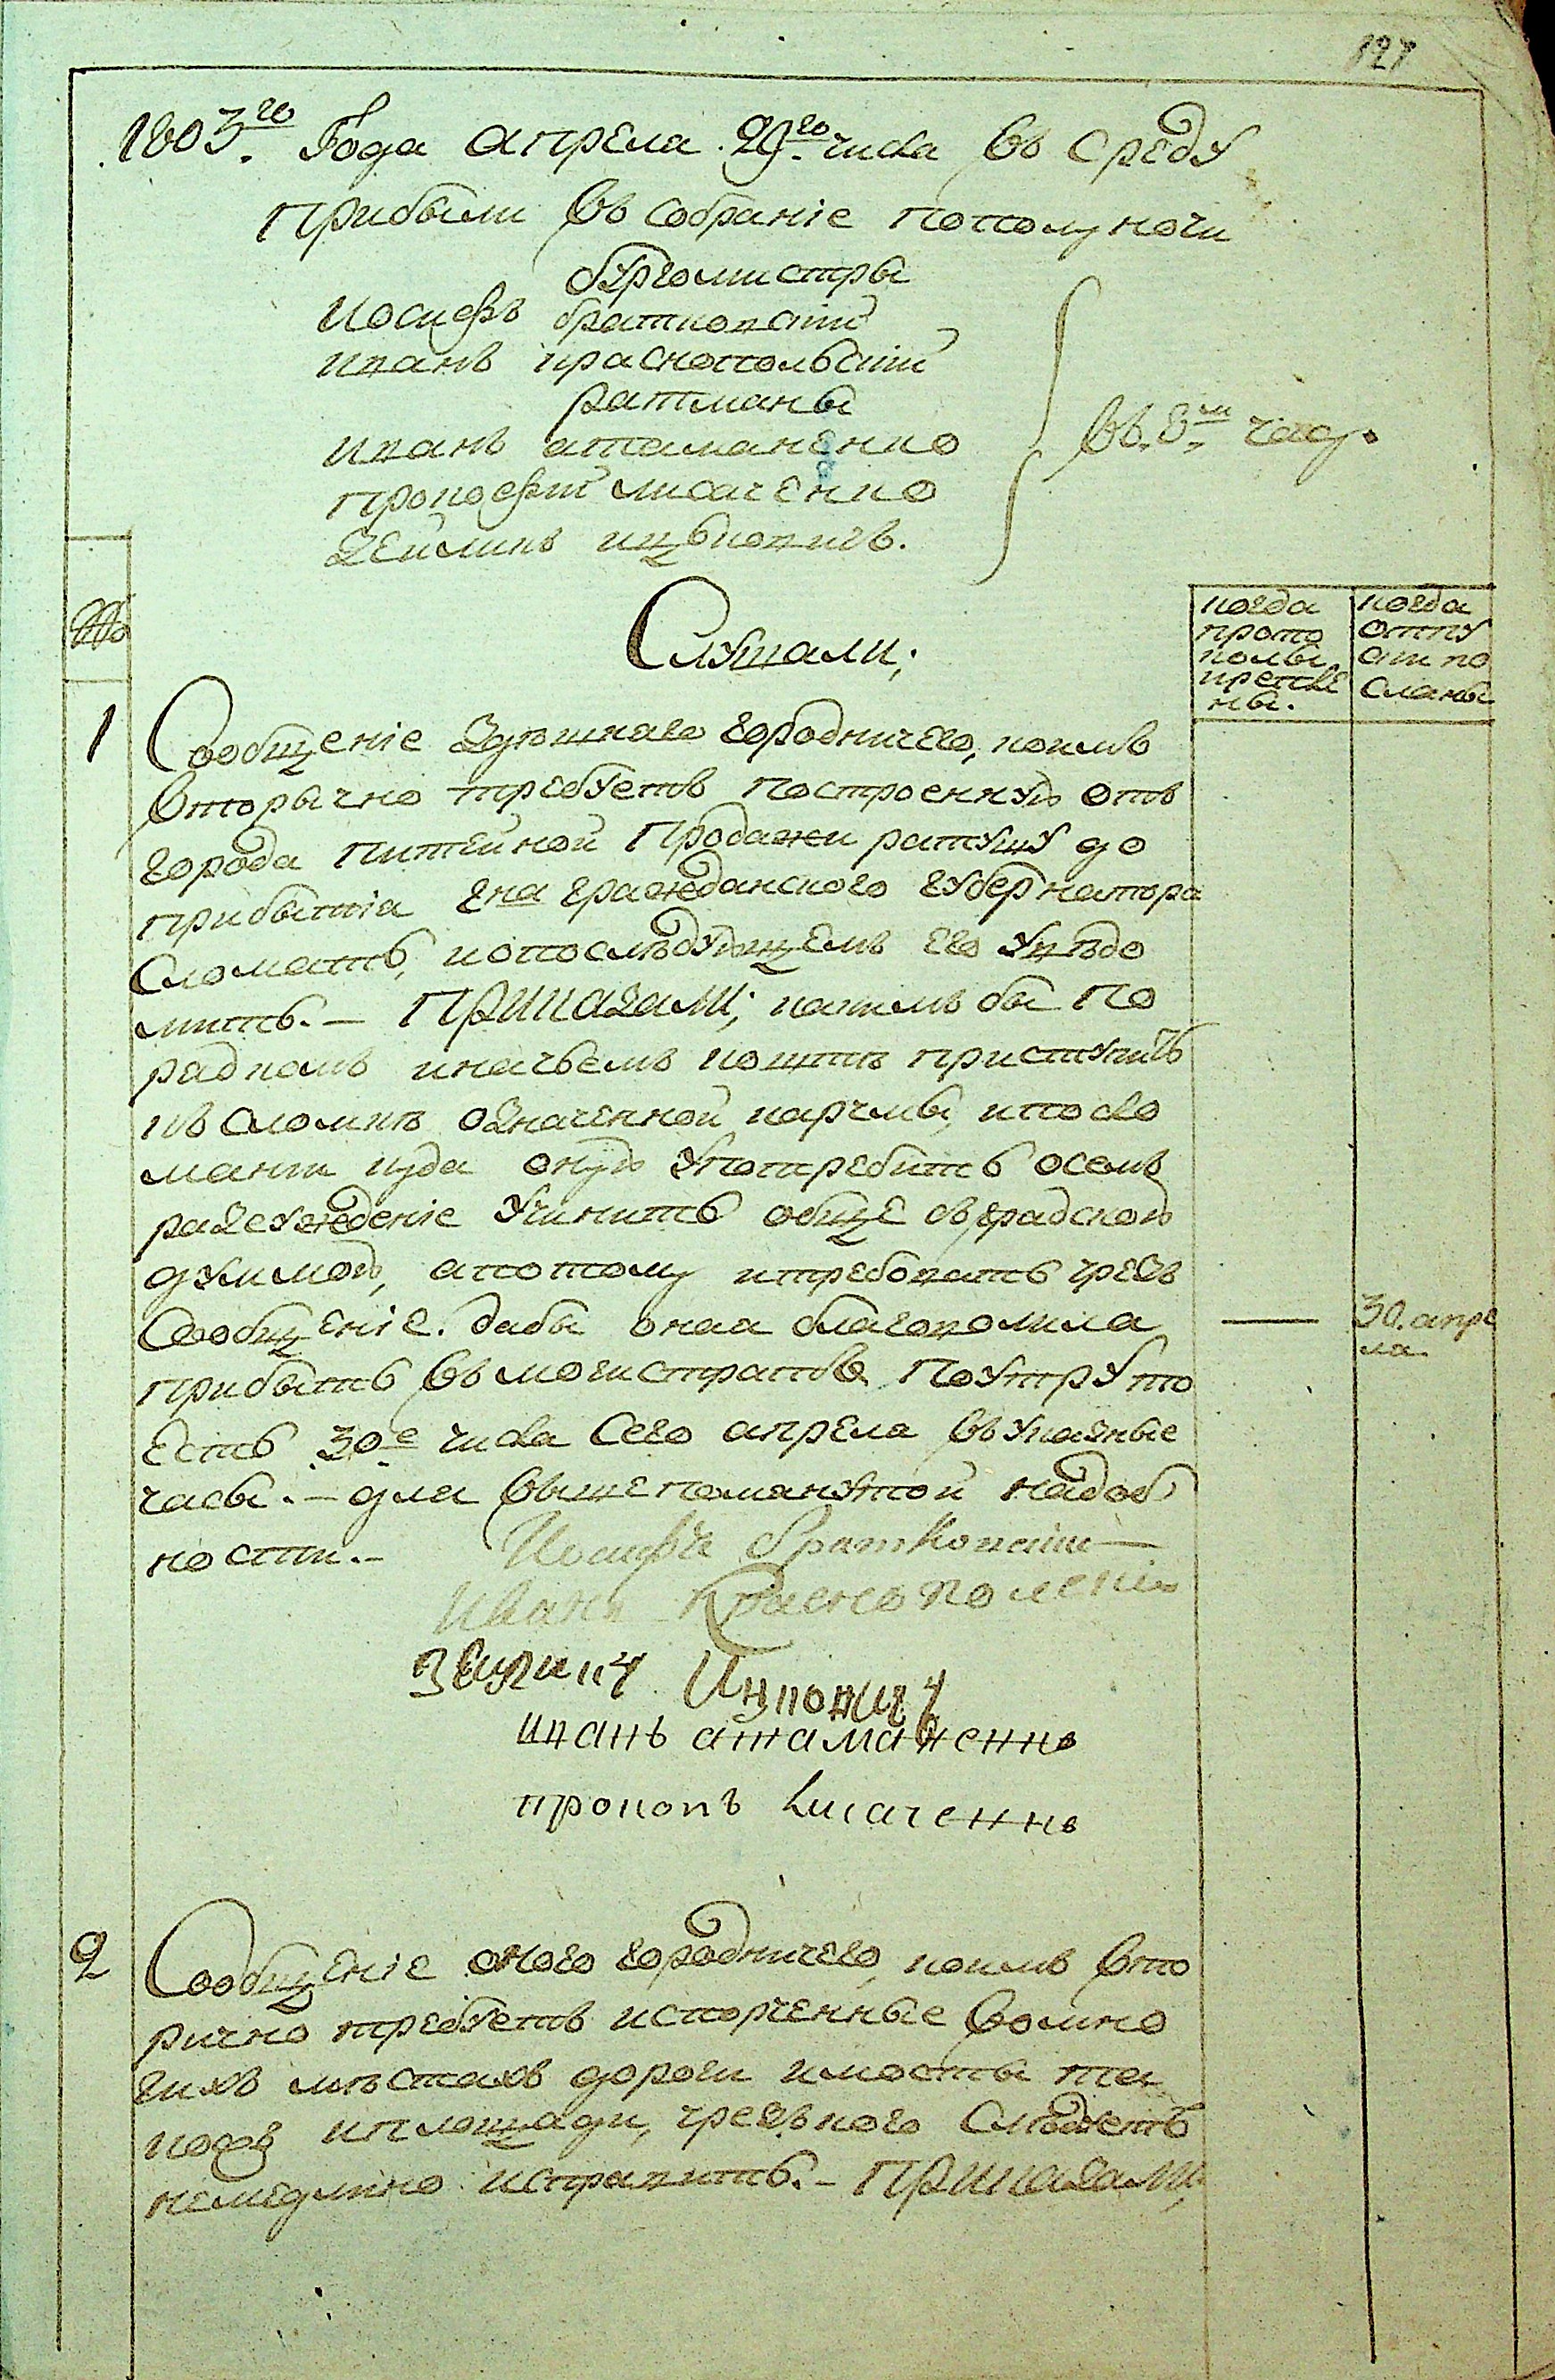 127
1803.го Года апреля 29.го числа въ среду
Прибыли въ собраніе пополуночи
бургомистры
Іосифъ братковскій
иванъ краснопольскій
ратманы
иванъ атаманенко
прокофій лисаченко
Зейликъ ицьковичь.
въ 8м часу.
№
Слушали;
когда прото колы кретвле ны.
когда отпу ски по сланы
1
Сообщеніе Здѣшнаго городничего, коимъ
вторычно требуетъ построенную отъ
города питейной Продажи ратушу до
прибытія гна гражданского губернатора
сломать, ипослѣдующемъ его увѣдо
мить. – Приказали; какимъ бы По
радкомъ иначьемъ коштѣ приступить
къ сломкѣ означенной карчмы, ипосло
мани куда оную употребить осемъ
разсужденіе учинить обще съ градскою
думмою, апотому итребовать чрезъ
Сообщеніе. дабы оная благоволила
прибыть въ могистратъ Поутру то
есть 30е числа Сего апреля въуказные
часы. – для вышепоманутой надоб
ности. –
30. апре
ля
Іосифъ братковскій
Иванъ Краснополскій
Зейликъ Ицковичъ
иванъ атаманенко
прокопъ лисаченко
2
Сообщеніе оного городничего, коимъ вто
ричо требуетъ испорченные вомно
гихъ мѣстахъ дороги имосты та
кожъ иплощади, чрезъ кого Слѣдуетъ
немедлѣно исправить. – Приказали;